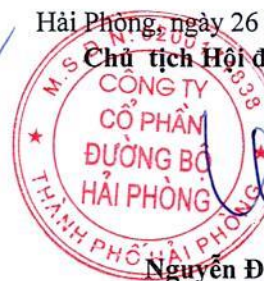 Hải Phòng, ngày 26
Chủ tịch Hội đ
M.S.D.N:
CÔNG TY
CỔ PHẦN
ĐƯỜNG BỘ
HẢI PHÒNG
THÀNH PHỐ HẢI PHÒNG
Nguyễn Đ